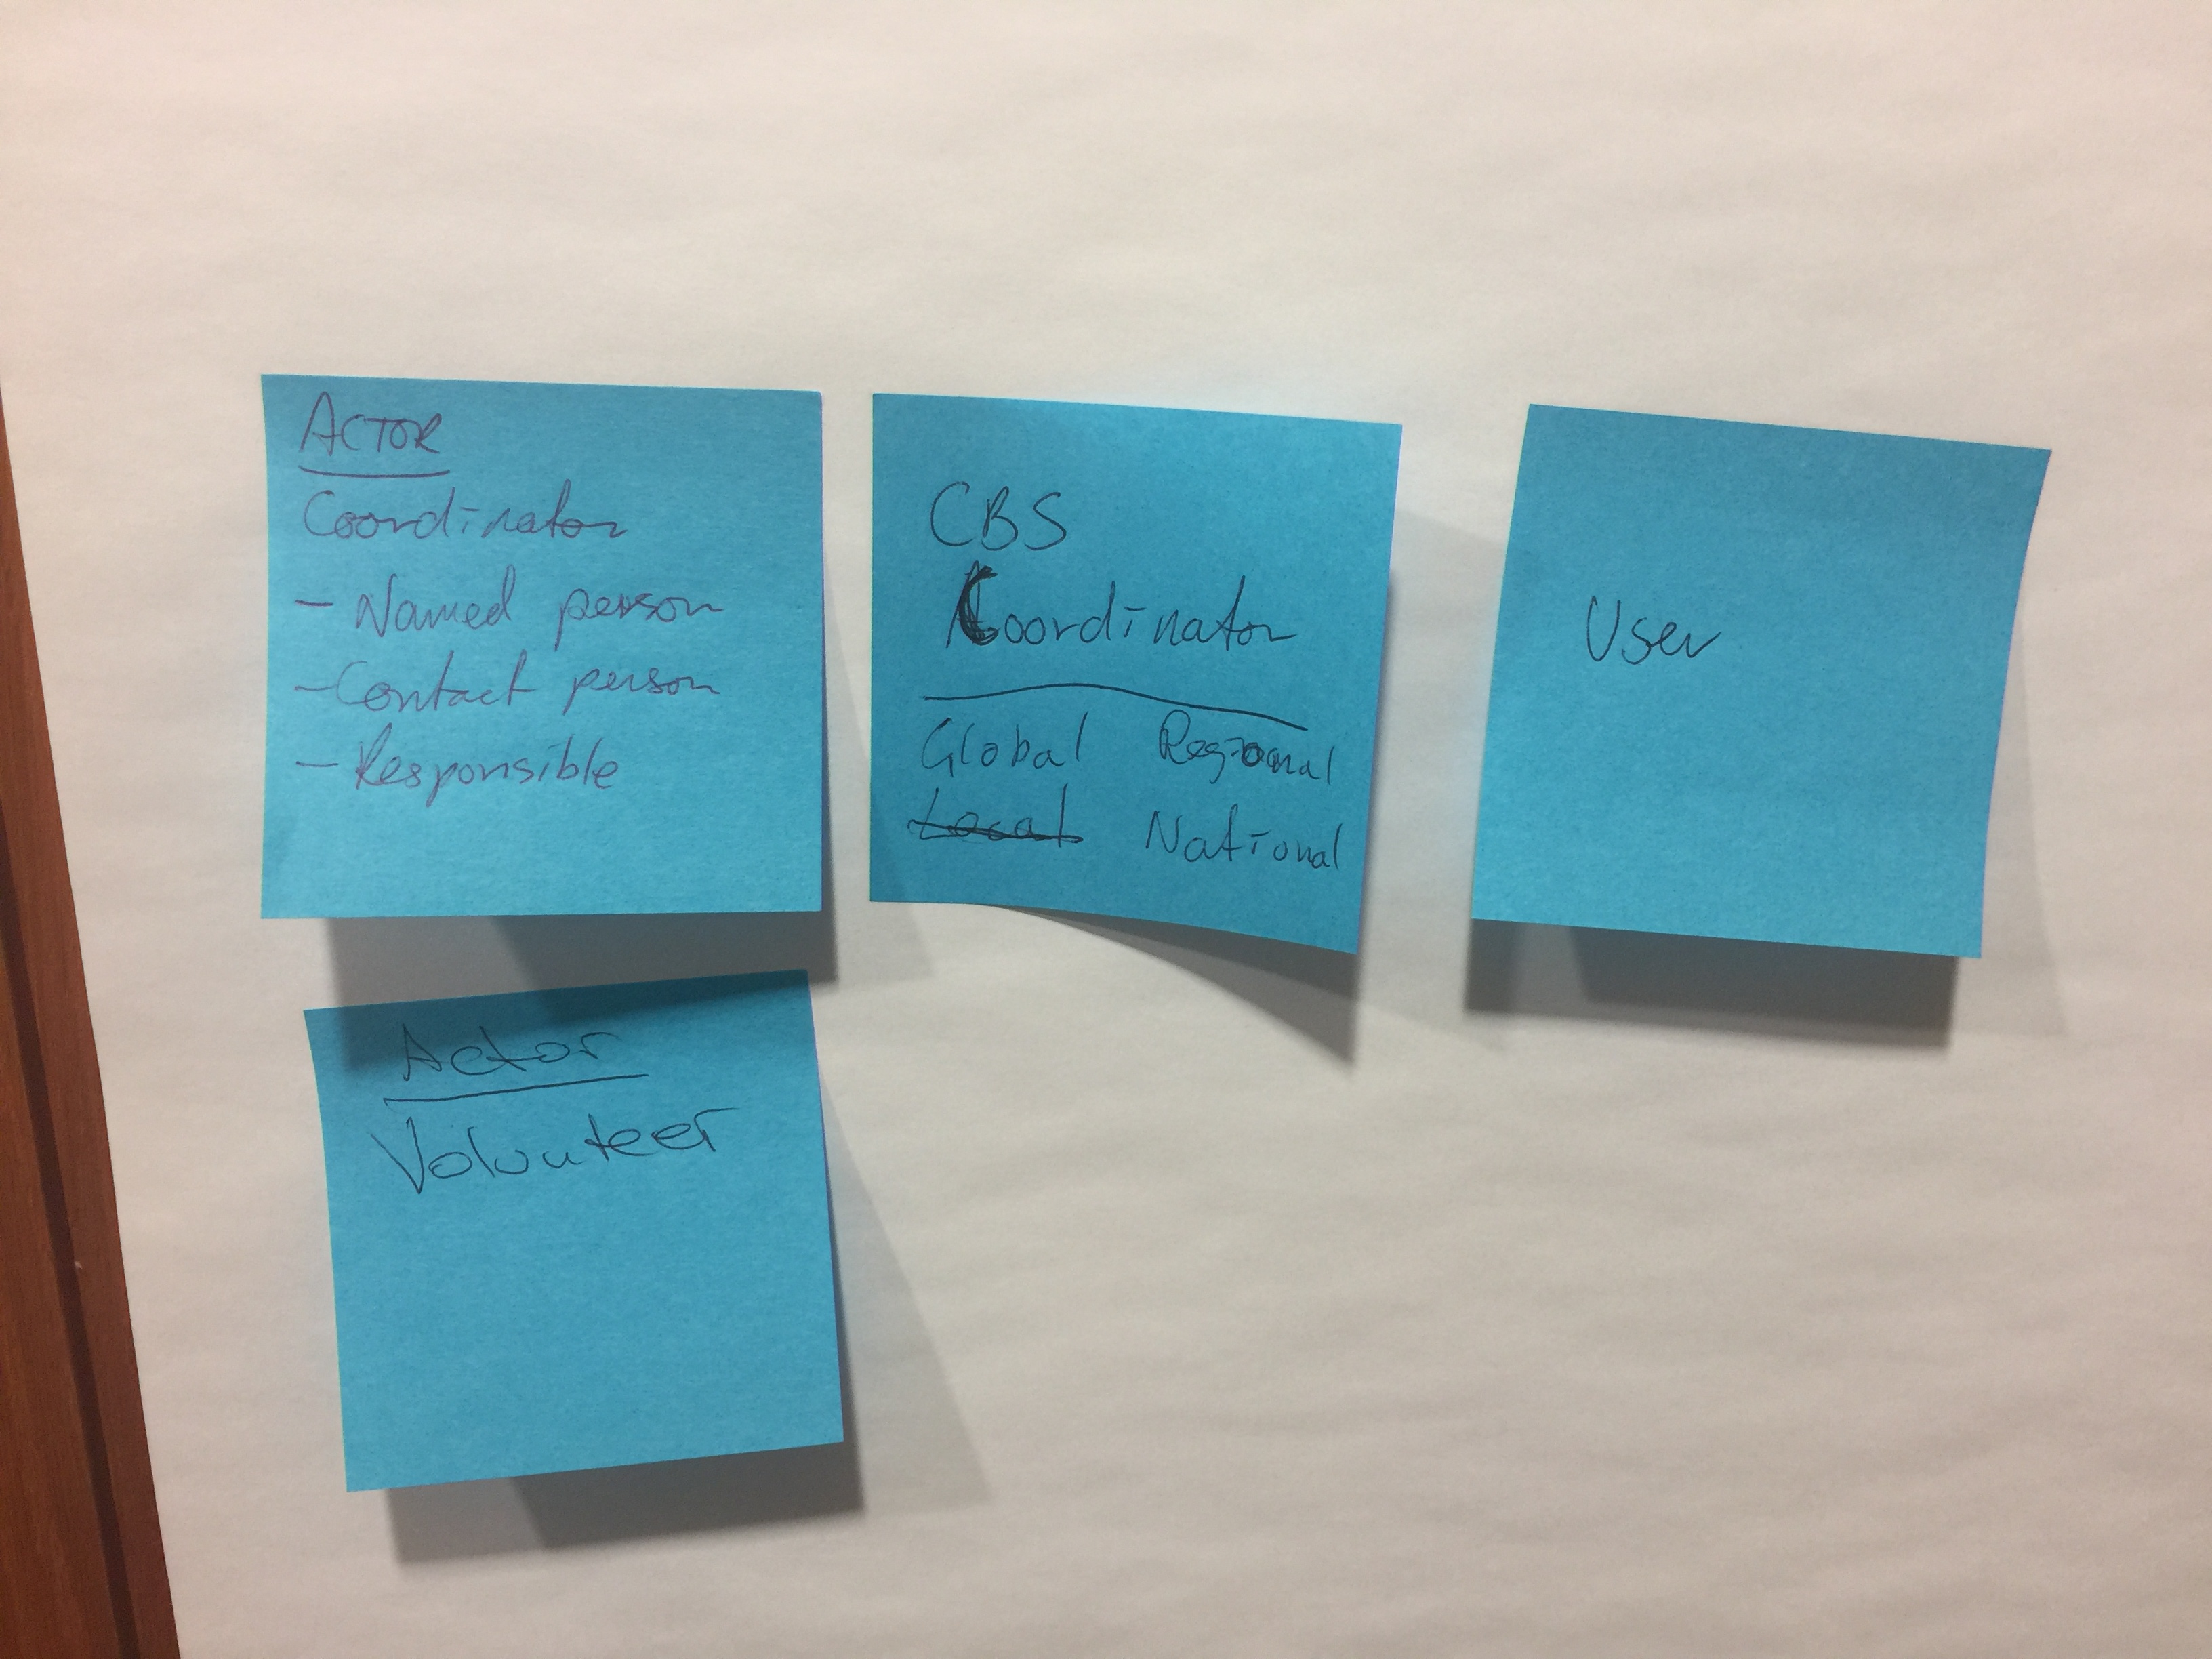 ACTOR
Coordinator
- Named person
- Contact person
- Responsible
CBS
Coordinator
Global Regional
Local National
User
Actor
Volunteer